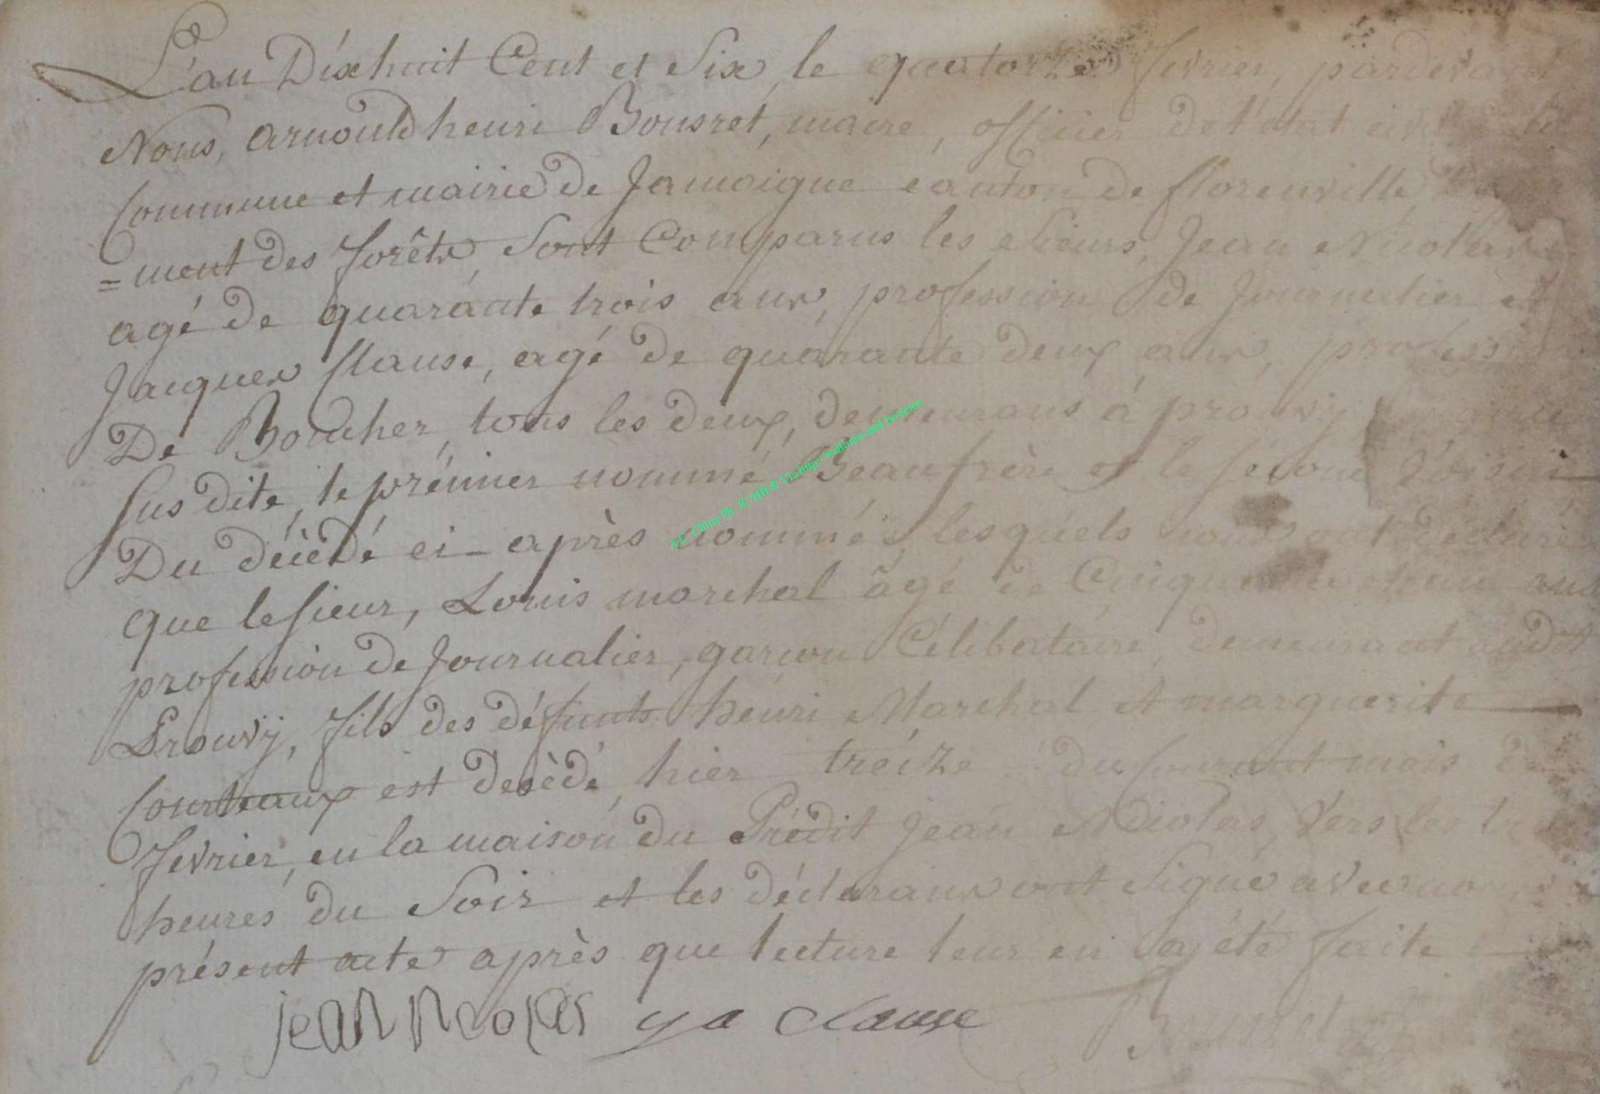 L'an Dixhuit Cent et Six, le quatorze fevrier, pardevant
Nous, arnould henri Bousret, maire, officier de l'état civil
Commune et mairie de Jamoigne canton de florenville,
=ment des forêts, Sont Comparus les Sieurs, Jean Nicolas
agé de quarante trois ans, profession de Journalier et
Jacques Clause, agé de quarante deux ans, profession
De Boucher, tous les deux, demeurans à prouvi
Sus dite, le prémier nommé Beaufrère et le second
Du décédé ci-après nommé, lesquels nous ont déclaré
que le Sieur, Louis marchal âgé de Cinquante ans
profession de Journalier, garcon Célibataire, demeurant audit
Prouvÿ, fils des défunts henri Marchal et marguerite
Courteaux est decèdé, hier treize du Courant mois de
fevrier, en la maison du Prédit Jean Nicolas, Vers les
heures du Soir et les déclarans ont Signé avec nous
présent acte après que lecture leur en a été faite
jean Nicolas ja Clause